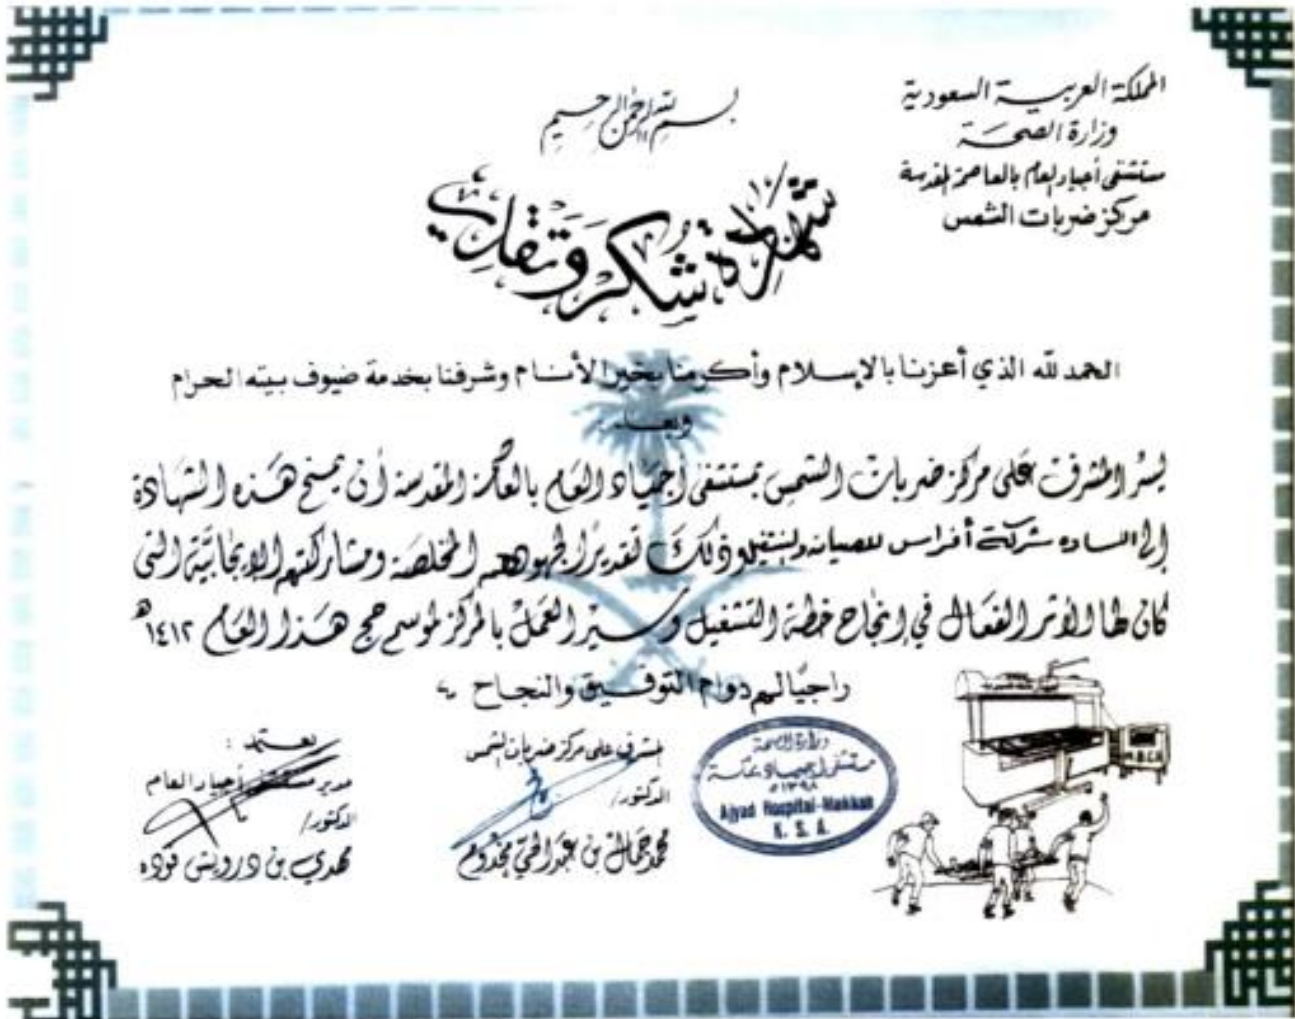 المملكة العربية السعودية
وزارة الصحة
مستشفى أجياد العام بالعاصمة المقدسة
مركز ضربات الشمس
بسم الله الرحمن الرحيم
شهادة شكر وتقدير
الحمد لله الذي أعزنا بالإسلام وأكرمنا بخير الأنام وشرفنا بخدمة ضيوف بيته الحرام
وبعد
يسر المشرف على مركز ضربات الشمس بمستشفى أجياد العام بمكة المقدسة أن يمنح هذه الشهادة
إلى الساده شركة أفراس للصيانه والتشغيل وذلك تقديرا لجهودهم المخلصة ومشاركتهم الإيجابية التي
كان لها الأثر الفعال في إنجاح خطة التشغيل وسير العمل بالمركز لموسم حج هذا العام ١٤١٢هـ
راجيا لهم دوام التوفيق والنجاح
وزارة الصحة
مستشفى اجياد بمكة
١٣٩٨هـ
Ajyad Hospital-Makkah
K. S. A.
المشرف على مركز ضربات الشمس
الدكتور/
محمد جمال بن عبد الحي مخدوم
يعتمد :
مدير مستشفى أجياد العام
الدكتور/
مهدي بن درويش فوده